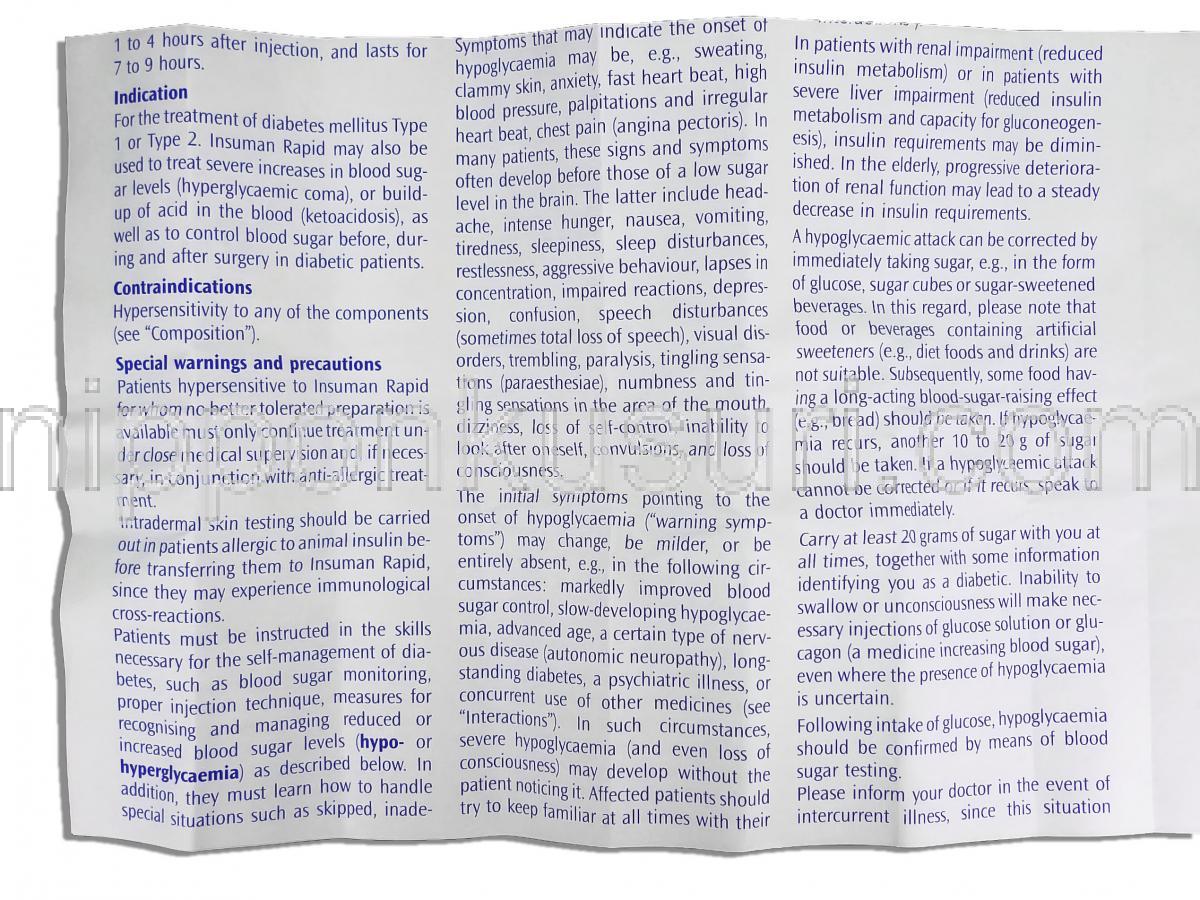 1 to 4 hours after injection, and lasts for
7 to 9 hours.
Indication
For the treatment of diabetes mellitus Type
1 or Type 2. Insuman Rapid may also be
used to treat severe increases in blood sug-
ar levels (hyperglycaemic coma), or build-
up of acid in the blood (ketoacidosis), as
well as to control blood sugar before, dur-
ing and after surgery in diabetic patients.
Contraindications
Hypersensitivity to any of the components
(see “Composition”).
Special warnings and precautions
Patients hypersensitive to Insuman Rapid
for whom no better tolerated preparation is
available must only continue treatment un-
der close medical supervision and, if neces-
sary, in conjunction with anti-allergic treat-
ment.
Intradermal skin testing should be carried
out in patients allergic to animal insulin be-
fore transferring them to Insuman Rapid,
since they may experience immunological
cross-reactions.
Patients must be instructed in the skills
necessary for the self-management of dia-
betes, such as blood sugar monitoring,
proper injection technique, measures for
recognising and managing reduced or
increased blood sugar levels (hypo- or
hyperglycaemia) as described below. In
addition, they must learn how to handle
special situations such as skipped, inade-
Symptoms that may indicate the onset of
hypoglycaemia may be, e.g., sweating,
clammy skin, anxiety, fast heart beat, high
blood pressure, palpitations and irregular
heart beat, chest pain (angina pectoris). In
many patients, these signs and symptoms
often develop before those of a low sugar
level in the brain. The latter include head-
ache, intense hunger, nausea, vomiting,
tiredness, sleepiness, sleep disturbances,
restlessness, aggressive behaviour, lapses in
concentration, impaired reactions, depres-
sion, confusion, speech disturbances
(sometimes total loss of speech), visual dis-
orders, trembling, paralysis, tingling sensa-
tions (paraesthesiae), numbness and tin-
gling sensations in the area of the mouth,
dizziness, loss of self-control, inability to
look after oneself, convulsions, and loss of
consciousness.
The initial symptoms pointing to the
onset of hypoglycaemia (“warning symp-
toms”) may change, be milder, or be
entirely absent, e.g., in the following cir-
cumstances: markedly improved blood
sugar control, slow-developing hypoglycae-
mia, advanced age, a certain type of nerv-
ous disease (autonomic neuropathy), long-
standing diabetes, a psychiatric illness, or
concurrent use of other medicines (see
“Interactions”). In such circumstances,
severe hypoglycaemia (and even loss of
consciousness) may develop without the
patient noticing it. Affected patients should
try to keep familiar at all times with their
In patients with renal impairment (reduced
insulin metabolism) or in patients with
severe liver impairment (reduced insulin
metabolism and capacity for gluconeogen-
esis), insulin requirements may be dimin-
ished. In the elderly, progressive deteriora-
tion of renal function may lead to a steady
decrease in insulin requirements.
A hypoglycaemic attack can be corrected by
immediately taking sugar, e.g., in the form
of glucose, sugar cubes or sugar-sweetened
beverages. In this regard, please note that
food or beverages containing artificial
sweeteners (e.g., diet foods and drinks) are
not suitable. Subsequently, some food hav-
ing a long-acting blood-sugar-raising effect
(e.g., bread) should be taken. If hypoglycae-
mia recurs, another 10 to 20 g of sugar
should be taken. If a hypoglycaemic attack
cannot be corrected or if it recurs, speak to
a doctor immediately.
Carry at least 20 grams of sugar with you at
all times, together with some information
identifying you as a diabetic. Inability to
swallow or unconsciousness will make nec-
essary injections of glucose solution or glu-
cagon (a medicine increasing blood sugar),
even where the presence of hypoglycaemia
is uncertain.
Following intake of glucose, hypoglycaemia
should be confirmed by means of blood
sugar testing.
Please inform your doctor in the event of
intercurrent illness, since this situation
nipponkusuri.com